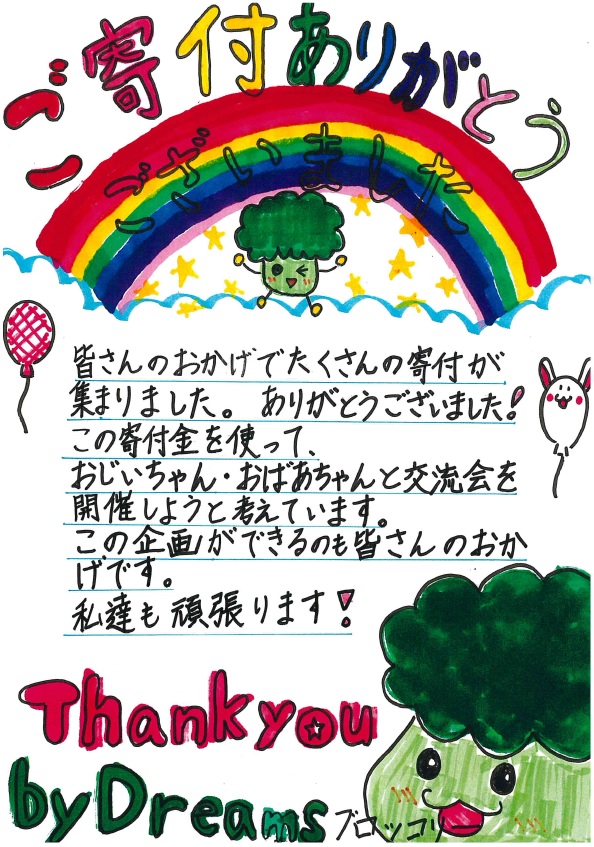 ご寄付ありがとう
ございました
皆さんのおかげでたくさんの寄付が
集まりました。ありがとうございました!
この寄付金を使って、
おじいちゃん・おばあちゃんと交流会を
開催しようと考えています。
この企画ができるのも皆さんのおか
げです。
私達も頑張ります!
Thank you
by Dreams ブロッコリー